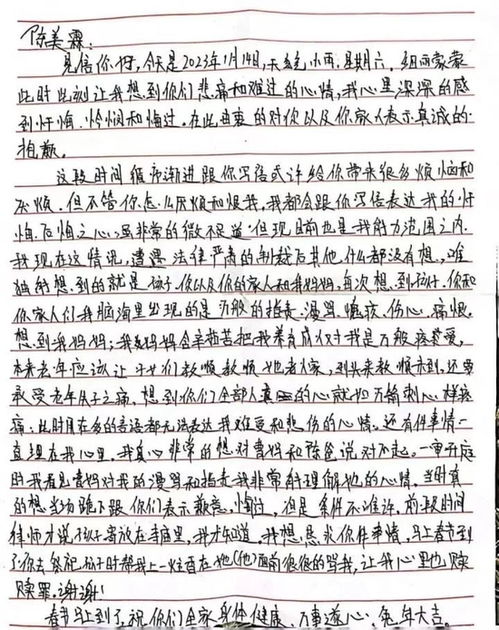 陈美霖:
见信你好,今天是2023年1月14日,天气小雨,星期六,细雨蒙蒙
此时此刻让我想到你们悲痛和难过的心情,我心里深深的感
到忏悔、怜悯和悔过,在此由衷的对你以及你家人表示真诚的
抱歉。
这段时间循序渐进跟你写信或许给你带来很多烦恼和
不烦,但不管你怎么厌烦和恨我,我都会跟你写信表达我的忏
悔,后悔之心,虽非常的微不足道,但现目前也是我能力范围之内,
我现在这情况,遭遇法律严肃的制裁后其他什么都没有想,唯
独所想到的就是孩子,你以及你的家人和我妈妈,每次想到孩子,你和
你家人们我脑海里出现的是万般的指责、漫骂、
伤心、痛恨,
想到我妈妈;我妈妈含辛茹苦把我养育成人对我是万般疼爱,
本来老年应该让子女们孝顺孝顺她老人家,到头来孝顺未到,还要
承受老年失子之痛,想到你们全部人
的心就如万箭刺心一样疼
痛,此时用在多的言语都无法表达我难受和悲伤的心情,还有件事情一
直埋在我心里,我真心非常的想对曹妈和陈爸说对不起。一审开庭
时我看见曹妈对我的漫骂和指责我非常有理解她的心情,当时真
的想当场跪下跟你们表示歉意,悔过,但是条件不准许,前段时间
律师才说孩子寄放在寺庙里,我才知道,我想恳求你件事情,马上春节到
了你去祭祀孩子时帮我上一炷香在她(他)面前狠狠的骂我,让我心里也赎
赎罪,谢谢!
春节马上到了,祝你们全家身体健康、万事遂心、兔年大吉。